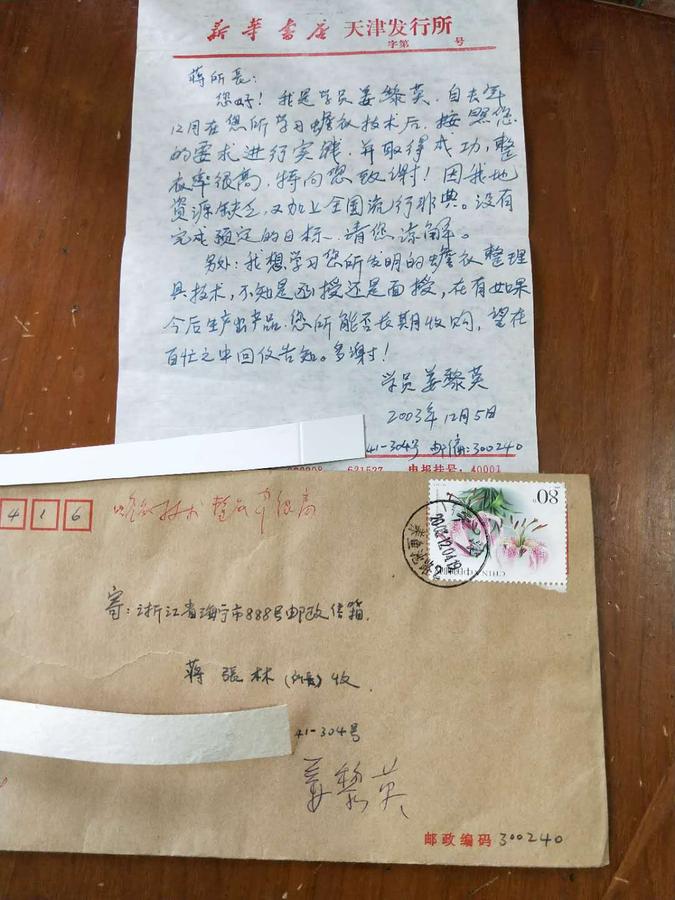 新华书店 天津发行所
字第 号
蒋所长：
您好！我是学员姜黎英，自去年
12月在您所学习蟾衣技术后，按照您
的要求进行实践，并取得成功，整
衣率很高，特向您致谢！因我地
资源缺乏，又加上全国流行非典。没有
完成预定的目标，请您凉解。
另处：我想学习您所发明的蟾衣整理
具技术，不知是函授还是面授，在有如果
今后生产出产品，您所能否长期收购，望在
百忙之中回仪告知。多谢！
学员姜黎英
2003年12月5日
41-304号 邮编：300240
电报挂号：40001
416
蟾衣技术 整衣率很高
80
CHINA 中国邮政
寄：浙江省海宁市888号邮政信箱.
蒋張林（所長）收.
41-304号
姜黎英
邮政编码 300240